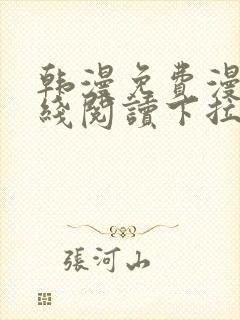 韩漫免費漫
线閱讀下拉
張河山